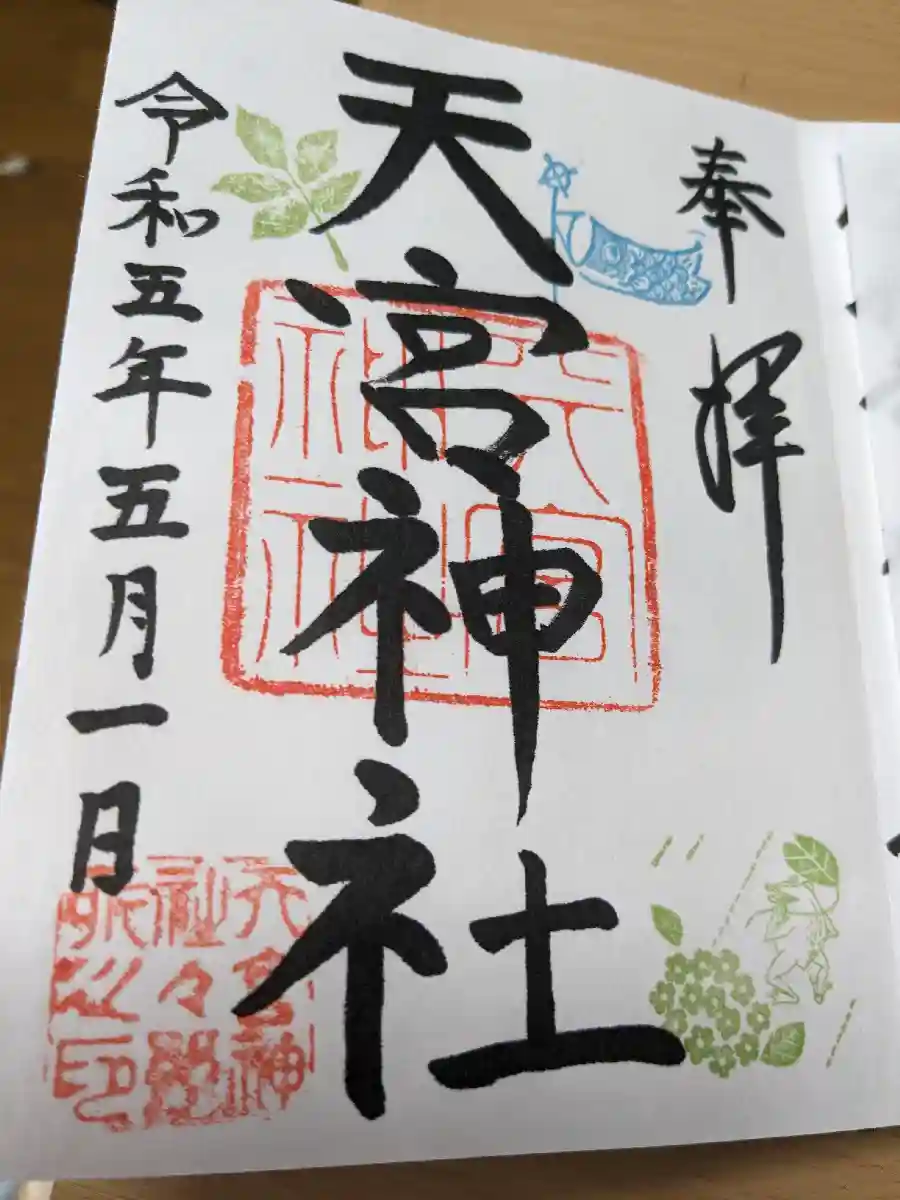 奉拝
天宮神社
令和五年五月一日
天宮神社
天宮神
社々務
所之印